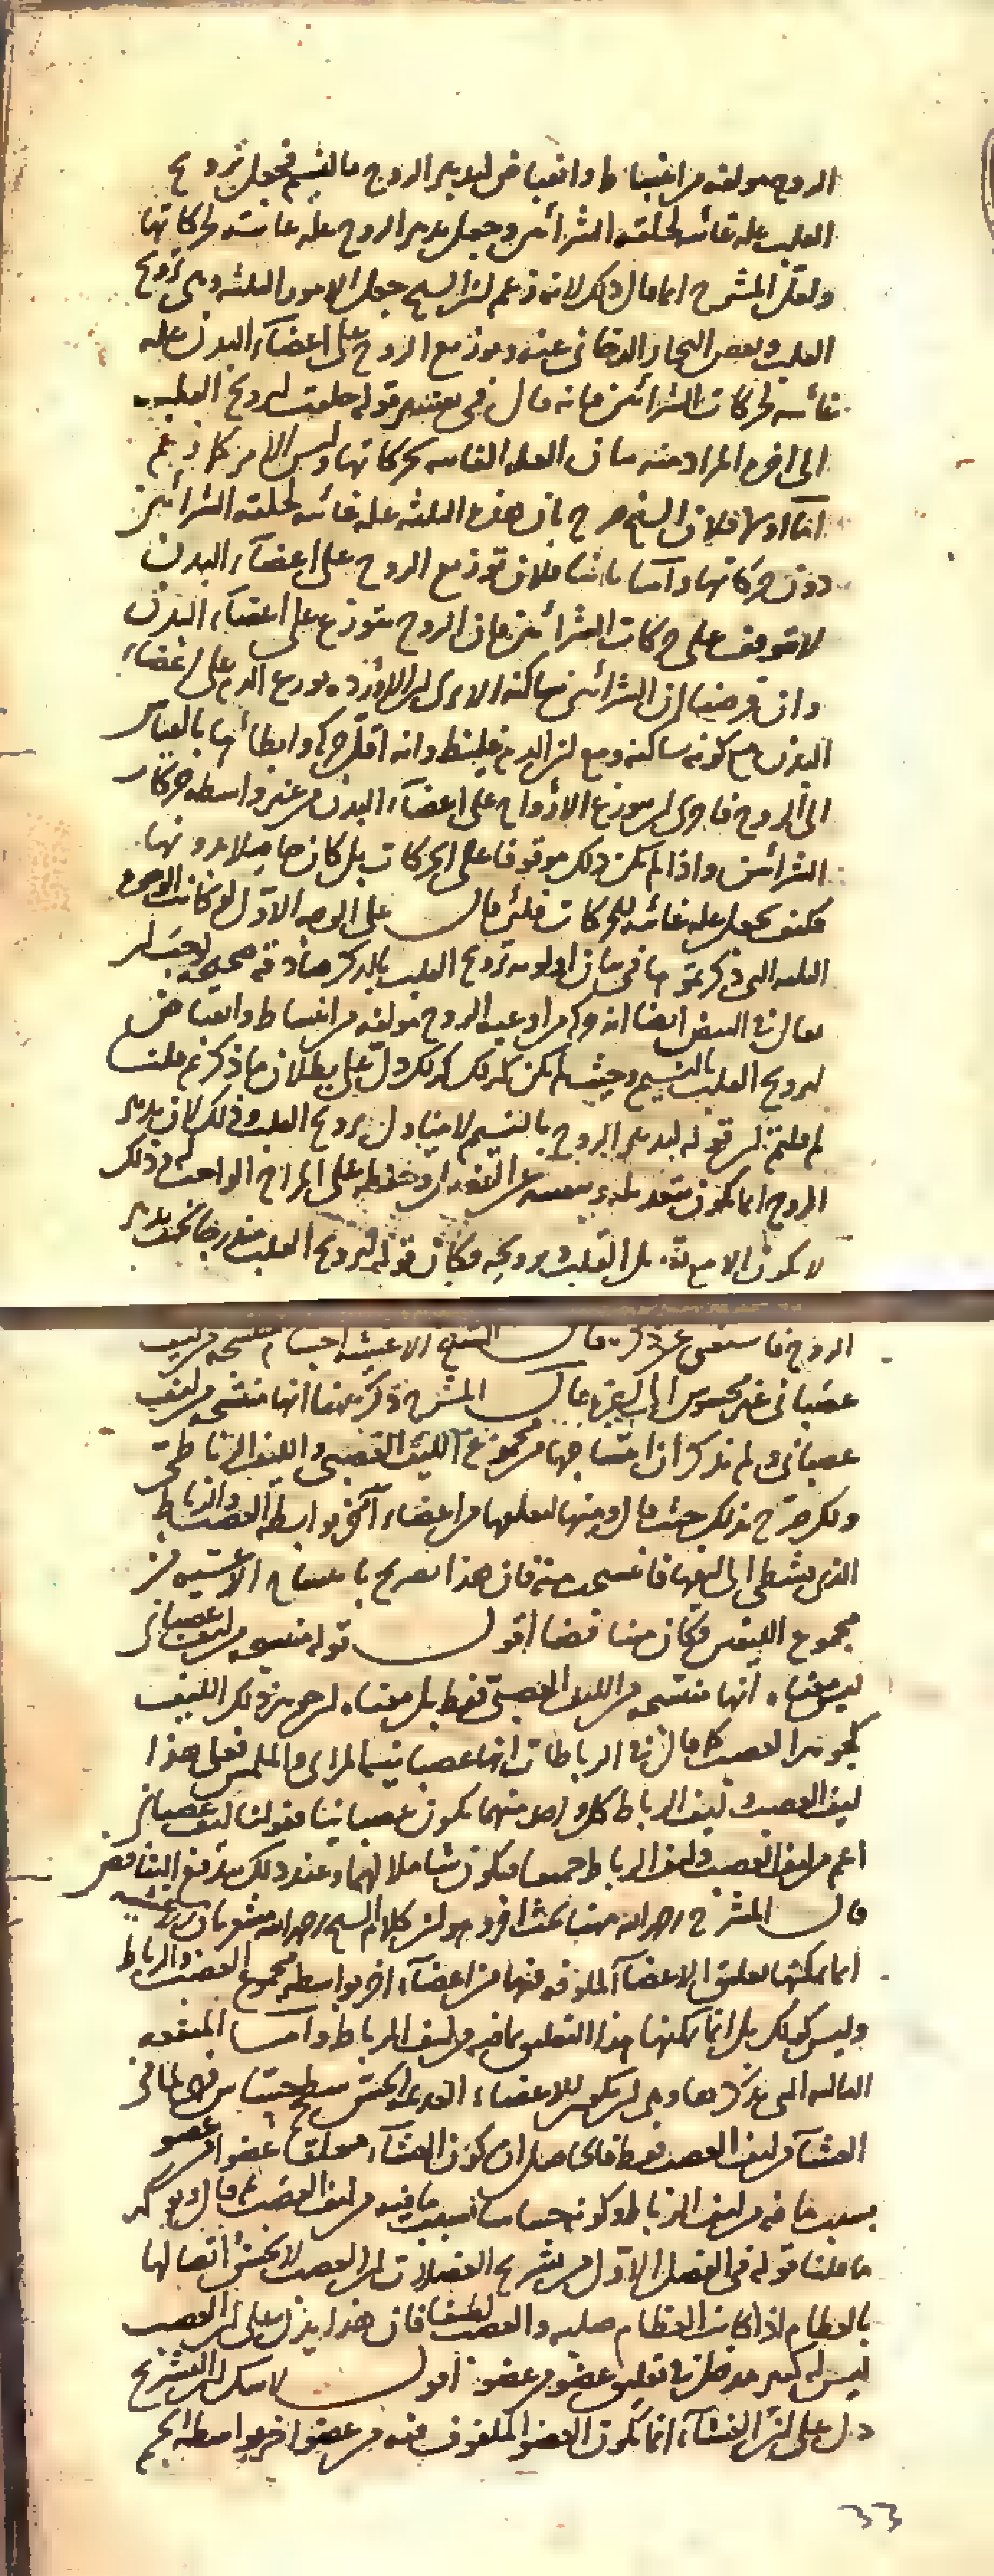 الروح مولفة من انبساط وانقباض لتدبير الروح بالنسيم فجعل ترويح
القلب علة غائية لخلقة الشرائين وجعل تدبير الروح علة غائية لحركاتها
ولعل المشرح انما قال ذلك لانه زعم ان الشيخ جعل الامور الثلثة وهى ترويح
القلب ونفض البخار الدخانى عنه وتوزيع الروح على اعضاء البدن علة
غائية لحركات الشرائين فانه قال فى تفسير قوله خلقت لترويح القلب
الى اخره المراد منه بيان العلة الغائية لحركاتها وليس الامر كما زعم
اما اولا فلان الشيخ صرح بان هذه الثلثة علة غائية لخلقة الشرائين
دون حركاتها واما ثانيا فلان توزيع الروح على اعضاء البدن
لا يتوقف على حركات الشرائين فان الروح يتوزع على اعضاء البدن
وان فرضنا ان الشرائين ساكنة الا يرى ان الاوردة يوزع الدم على اعضاء
البدن مع كونه ساكنة ومع ان الدم غليظ وانه اقل حركة وابطأ بالقياس
الى الروح فاولى ان يتوزع الارواح على اعضاء البدن من غير واسطة حركات
الشرائين واذا لم يكن ذلك موقوفا على الحركات بل كان حاصلا بدونها
فكيف يجعل علة غائية للحركات فلئن قال على الوجه الاول لو كانت الوجوه
الثلثة التى ذكرتموها فى بيان اولوية ترويح القلب بالذكر صادقة صحيحة لحسن ان
يقال فى النبض ايضا انه حركة من اوعية الروح مولفة من انبساط وانقباض
لترويح القلب بالنسيم وحيث لم يكن كذلك دل على بطلان ما ذكرتم قلنا
لم قلتم ان قوله لتدبير الروح بالنسيم لا يتناول ترويح القلب وذلك لان تدبير
الروح انما يكون بتعديله وتنقيته عن الفضول وحفظه على المزاج الواجب له وذلك
لا يكون الا مع تعديل القلب وترويحه فكان قوله لترويح القلب مندرجا تحت تدبير
الروح فاستغنى عن ذكره قال الشيخ الاغشية اجسام منتسجة من ليف
عصبانى غير محسوس الى اخره قال المشرح ذكر ههنا انها منتسجة من ليف
عصبانى ولم يذكر ان انتساجها من مجموع الليف العصبى والليف الرباطى
ولكن صرح بذلك حيث قال ومنها لتعلقها من اعضاء اخر بواسطة العصب والرباط
الذى يتشظى الى ليفها فانتسجت منه فان هذا تصريح بانتساج الاغشية من
مجموع الليفين فكان متناقضا اقول قوله منتسجة من ليف عصبانى
ليس معناه انها منتسجة من الليف العصبى فقط بل معناه ان جوهر ذلك الليف
كجوهر العصب كما قال فى الرباطات انها عصبانية المرأى والملمس فعلى هذا
ليف العصب وليف الرباط كل واحد منهما يكون عصبانيا فقولنا ليف عصبانى
اعم من ليف العصب وليف الرباط جميعا فيكون شاملا لهما وعند ذلك يندفع التناقض
قال المشرح رحمه الله ههنا بحث اخر وهو ان كلام الشيخ رحمه الله مشعر بان الاغشية
انما يمكنها تعليق الاعضاء الملفوفة فيها من اعضاء اخر بواسطة مجموع العصب والرباط
وليس كذلك بل انما يمكنها هذا التعليق بما فيه من ليف الرباط واما المنفعة
الثالثة التى يذكرها وهى ان يكون للاعضاء العديمة الحس سطح حساس فهى لما فى
الغشاء من ليف العصب فقط فالحاصل ان كون الغشاء معلق عضوا من عضو
بسبب ما فيه من ليف الرباط وكونه حساسا بسبب ما فيه من ليف العصب ثم قال ويؤكد
ما قلنا قوله فى الفصل الاول من تشريح العضلات ان العصب لا يحسن اتصالها
بالعظام اذا كانت العظام صلبة والعصب لطيفا فان هذا يدل على ان العصب
ليس له كثير مدخل فى تعليق عضو من عضو اقول لا شك ان التشريح
دل على ان الغشاء انما يكون العضو الملفوف فيه من عضو اخر بواسطة
33